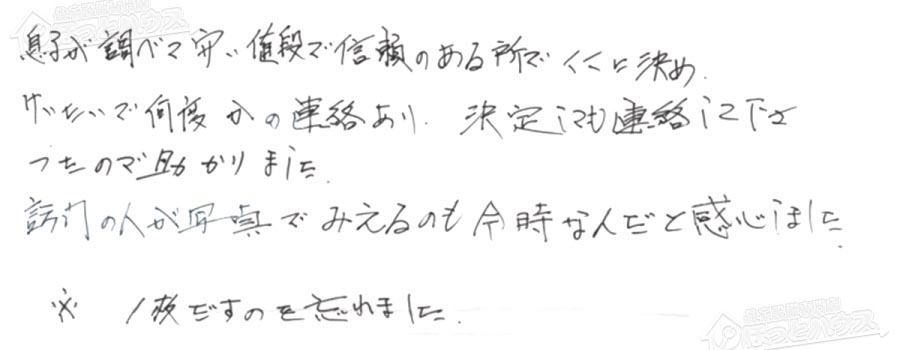 息子が調べて安い値段で信頼のある所でくくに決め.
けいたいで何度かの連絡あり. 決定しても連絡して下さ
ったので助かりました.
訪門の人が写真でみえるのも今時なんだと感心しました.
※ 1枚だすのを忘れました.
ほっとハウス
ほっとハウス